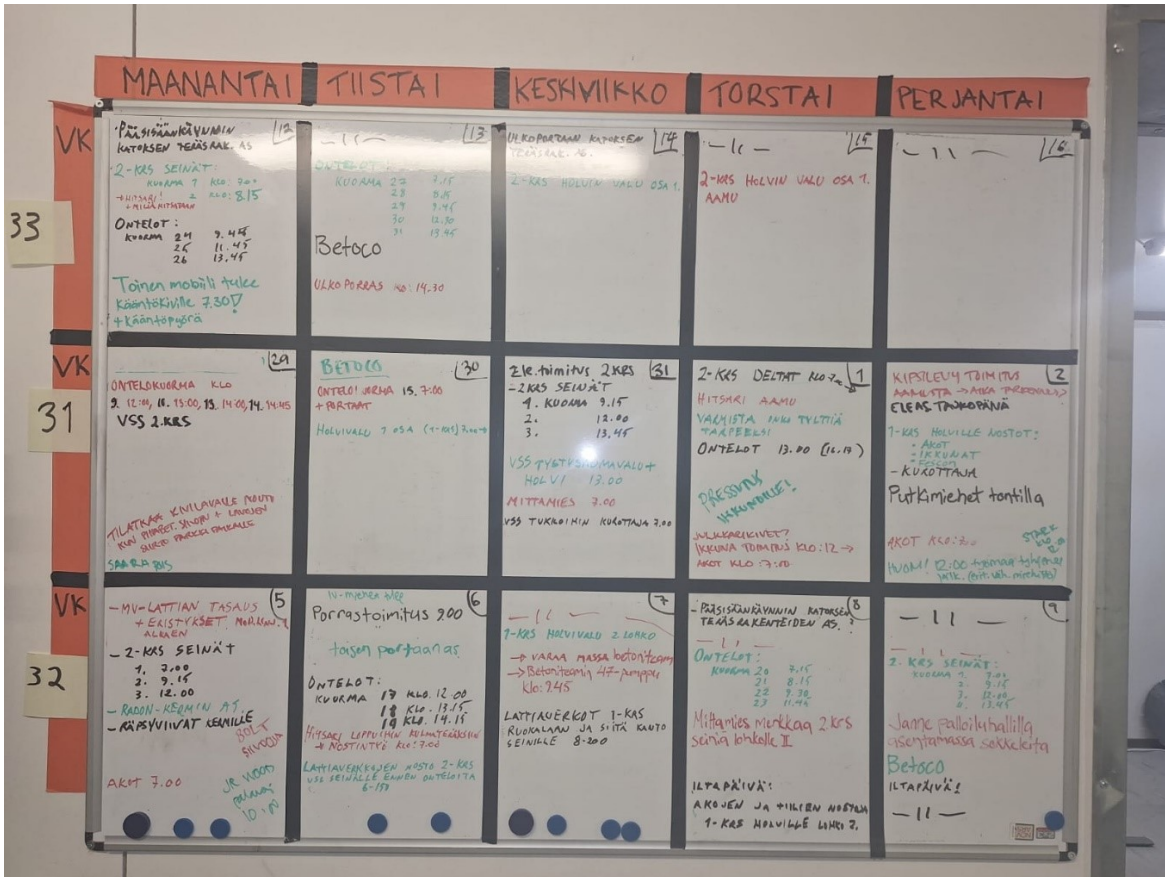 MAANANTAI
TIISTAI
KESKIVIIKKO
TORSTAI
PERJANTAI
VK
33
12
PÄÄSISÄÄNKÄYNNIN
KATOKSEN TERÄSRAK. AS
2-KRS SEINÄT:
KUORMA 1 KLO: 7.00
2 KLO: 8.15
→ HITSARI!
ONTELOT:
KUORMA 24 9.45
25 11.45
26 13.45
Toinen mobiili tulee
kääntökiville 7.30!
+ kääntöpyörä
13
— 11 —
ONTELOT:
KUORMA 27 7.15
28 8.15
29 9.45
30 12.30
31 13.45
Betoco
ULKOPORRAS KLO: 14.30
14
ULKOPORTAAN KATOKSEN
TERÄSRAK. AS.
2-KRS HOLVIN VALU OSA 1.
15
— 11 —
2-KRS HOLVIN VALU OSA 1.
AAMU
16
— 11 —
VK
31
29
ONTELOKUORMA KLO
9. 12:00, 10. 13:00, 13. 14:00, 14. 14:45
VSS 2.KRS
TILATKAA KIVILAVALLE NOUTO
SAARA
30
BETOCO
15. 7:00
+ PORTAAT
HOLVIVALU 1 OSA (1-KRS) 7.00→
31
2 KRS
- 2KRS SEINÄT
1. KUORMA 9.15
2. 12.00
3. 13.45
HOLVI 13.00
MITTAMIES 7.00
VSS TUKKOIHIN KUROTTAJA 7.00
1
2-KRS DELTAT KLO 7
HITSARI AAMU
VARMISTA ONKO TYLTTIÄ
TARPEEKSI
ONTELOT 13.00 (16.17)
PRESSUTUS
IKKUNOILLE!
JULKKARIKIVET?
IKKUNA TOIMITUS KLO: 12 →
AKOT KLO: 7:00
2
KIPSILEVY TOIMITUS
AAMUSTA
ELEAS TAUKOPÄIVÄ
1-KRS HOLVILLE NOSTOT:
• AKOT
- IKKUNAT
- KUROTTAJA
Putkimiehet tontilla
AKOT KLO:
STARK
KLO
HUOM! 12:00 työmaa
VK
32
5
- MV-LATTIAN TASAUS
+ ERISTYKSET
ALKAEN
- 2-KRS SEINÄT
1. 7.00
2. 9.15
3. 12.00
- RADON-KERMIN AS.
- RÄPSYVIIVAT KERMILLE
BOLT
SIIVOOJA
AKOT 7.00
JR NOSTO
10.00
6
IV-miehen
Porrastoimitus 9.00
toisen portaan as.
ONTELOT:
KUORMA 17 KLO. 12.00
18 KLO. 13.15
19 KLO. 14.15
HITSARI LOPPUIHIN KULMATERÄKSIIN
+ NOSTINTYÖ KLO: 7.00
LATTIAVERKKOJEN NOSTO 2-KRS
VSS SEINÄLLE ENNEN ONTELOITA
6-150
7
— 11 —
1-KRS HOLVIVALU 2 LOHKO
→ VARAA MASSA betoniteam
→ Betoniteamin 47-pumppu
klo: 9.45
LATTIAVERKOT 1-KRS
RUOKALAAN JA SIITÄ KANTO
SEINILLE 8-200
8
- PÄÄSISÄÄNKÄYNNIN KATOKSEN
TERÄSRAKENTEIDEN AS.
— 11 —
ONTELOT:
KUORMA 20 7.15
21 8.15
22 9.30
23 11.45
Mittamies merkkaa 2 krs
seiniä lohkolle II
ILTAPÄIVÄ:
AKOJEN JA TIILIEN NOSTOJA
1-KRS HOLVILLE LOHKO 2.
9
— 11 —
— 11 —
2. KRS SEINÄT:
KUORMA 1. 7.00
2. 9.15
3. 12.00
4. 13.45
Janne palloiluhallilla
asentamassa sokkeleita
Betoco
ILTAPÄIVÄ!
— 11 —